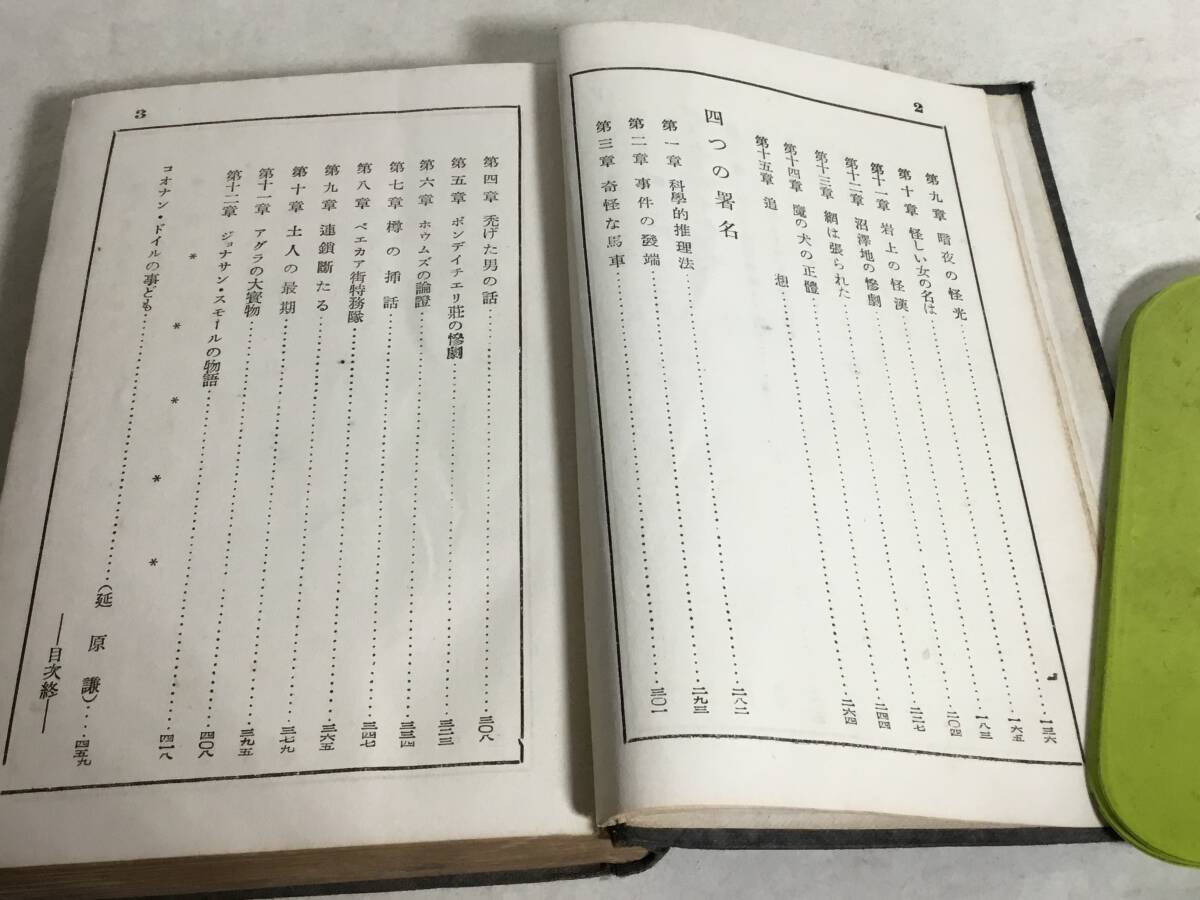 2
第九章 暗夜の怪光……一三六
第十章 怪しい女の名は……一六五
第十一章 岩上の怪漢……一八三
第十二章 沼澤地の慘劇……二〇四
第十三章 網は張られた……二二七
第十四章 魔の犬の正體……二四四
第十五章 追想……二六四
四つの署名
第一章 科學的推理法……二八二
第二章 事件の發端……二九三
第三章 奇怪な馬車……三〇一
3
第四章 禿げた男の話……三〇八
第五章 ポンデイチエリ莊の慘劇……三二三
第六章 ホウムズの論證……三三四
第七章 樽の挿話……三四七
第八章 ベエカア街特務隊……三六五
第九章 連鎖斷たる……三七九
第十章 土人の最期……三九五
第十一章 アグラの大寶物……四〇八
第十二章 ジョナサン・スモールの物語……四一八
* * * * *
コオナン・ドイルの事ども……(延原謙)…四五九
――目次終――